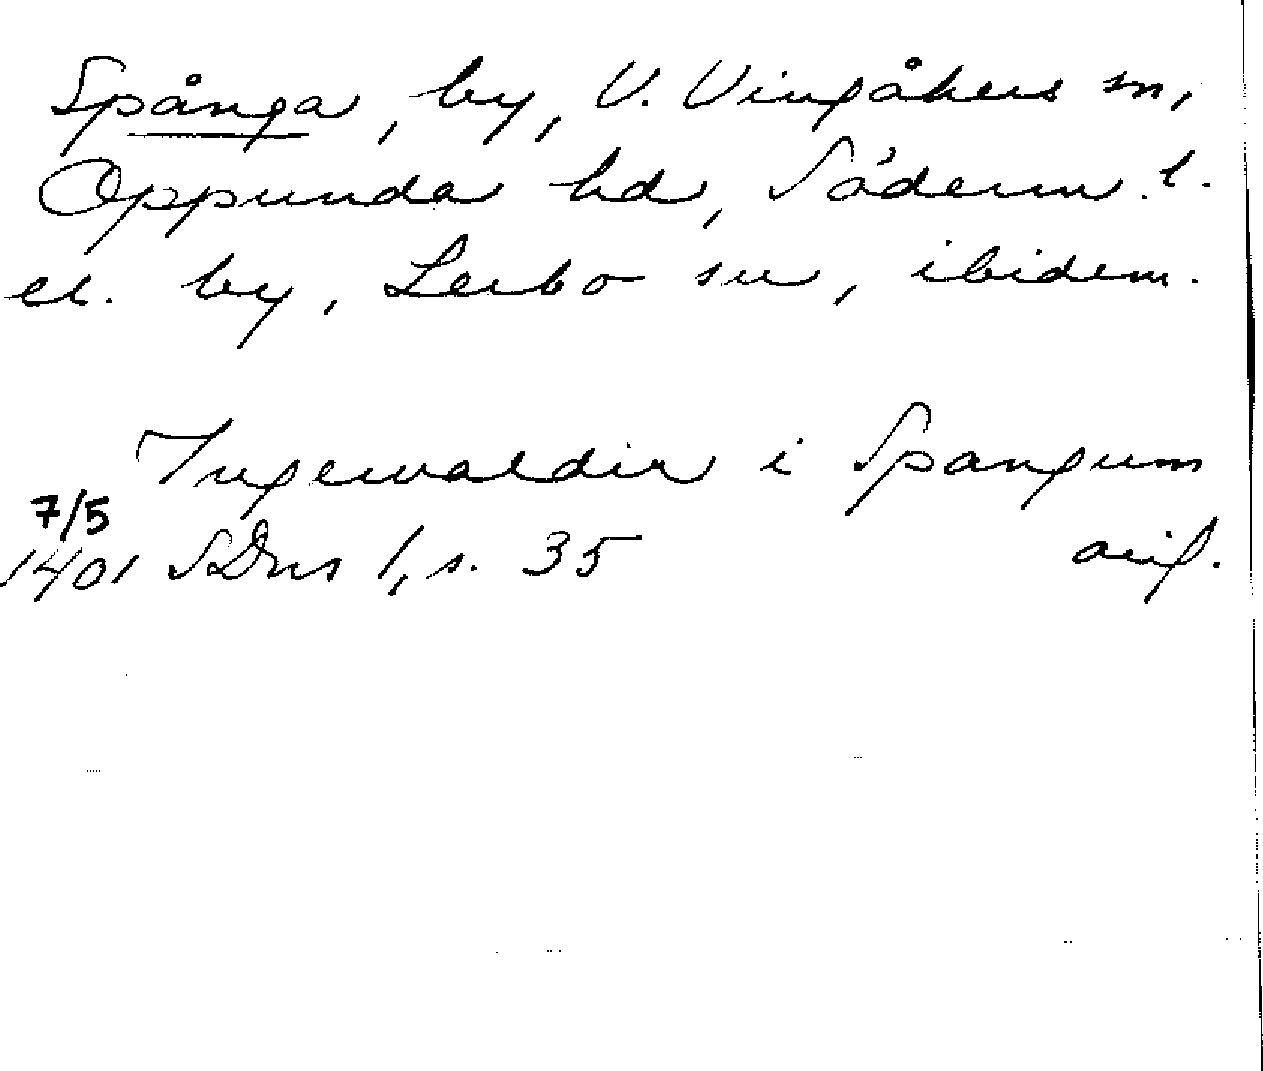 Spånga, by, V. Vingåkers sn,
Oppunda hd, Söderm. l.
el. by, Lerbo sn, ibidem.
Ingewaldir i Spangum
7/5
1401 SDns 1, s. 35 avf.